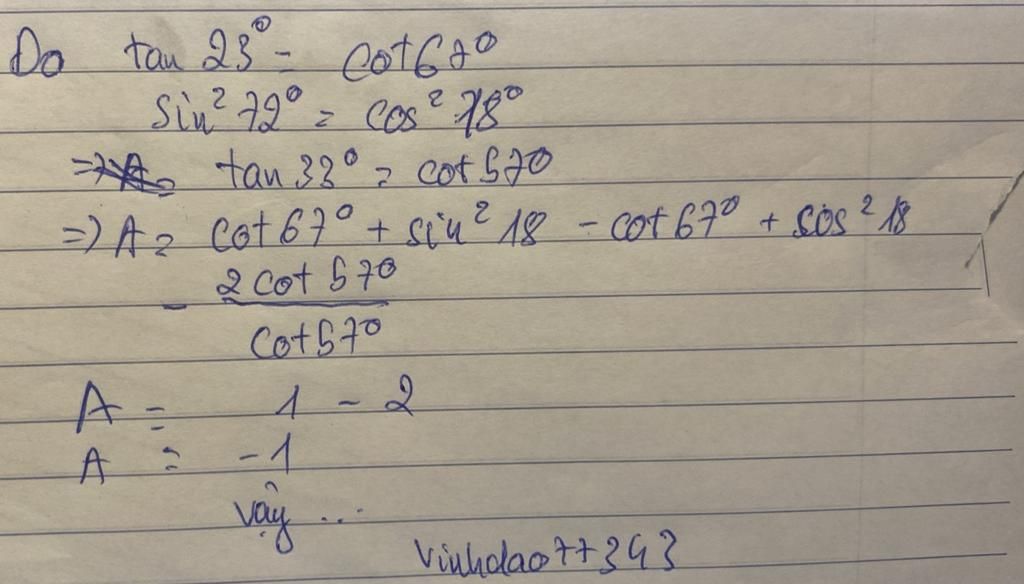 Do tan 23° = cot67°
sin² 72° = cos² 18°
=> tan 33° = cot 57°
=) A = cot 67° + sin² 18 - cot 67° + cos² 18
- 2 cot 57°
cot 57°
A = 1 - 2
A = -1
vậy ...
Vinhdao77343